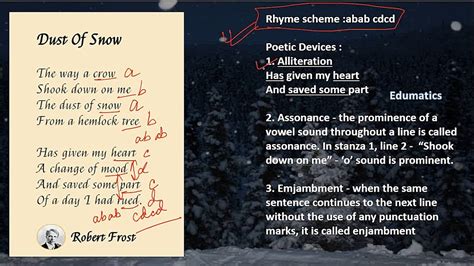 Dust Of Snow
The way a crow a
Shook down on me b
The dust of snow a
From a hemlock tree b
abab
Has given my heart c
A change of mood d
And saved some part c
Of a day I had rued. d
abab cdcd
Robert Frost
Rhyme scheme :abab cdcd
Poetic Devices :
1. Alliteration
Has given my heart
And saved some part
Edumatics
2. Assonance - the prominence of a
vowel sound throughout a line is called
assonance. In stanza 1, line 2 - “Shook
down on me” - ‘o’ sound is prominent.
3. Enjambment - when the same
sentence continues to the next line
without the use of any punctuation
marks, it is called enjambment